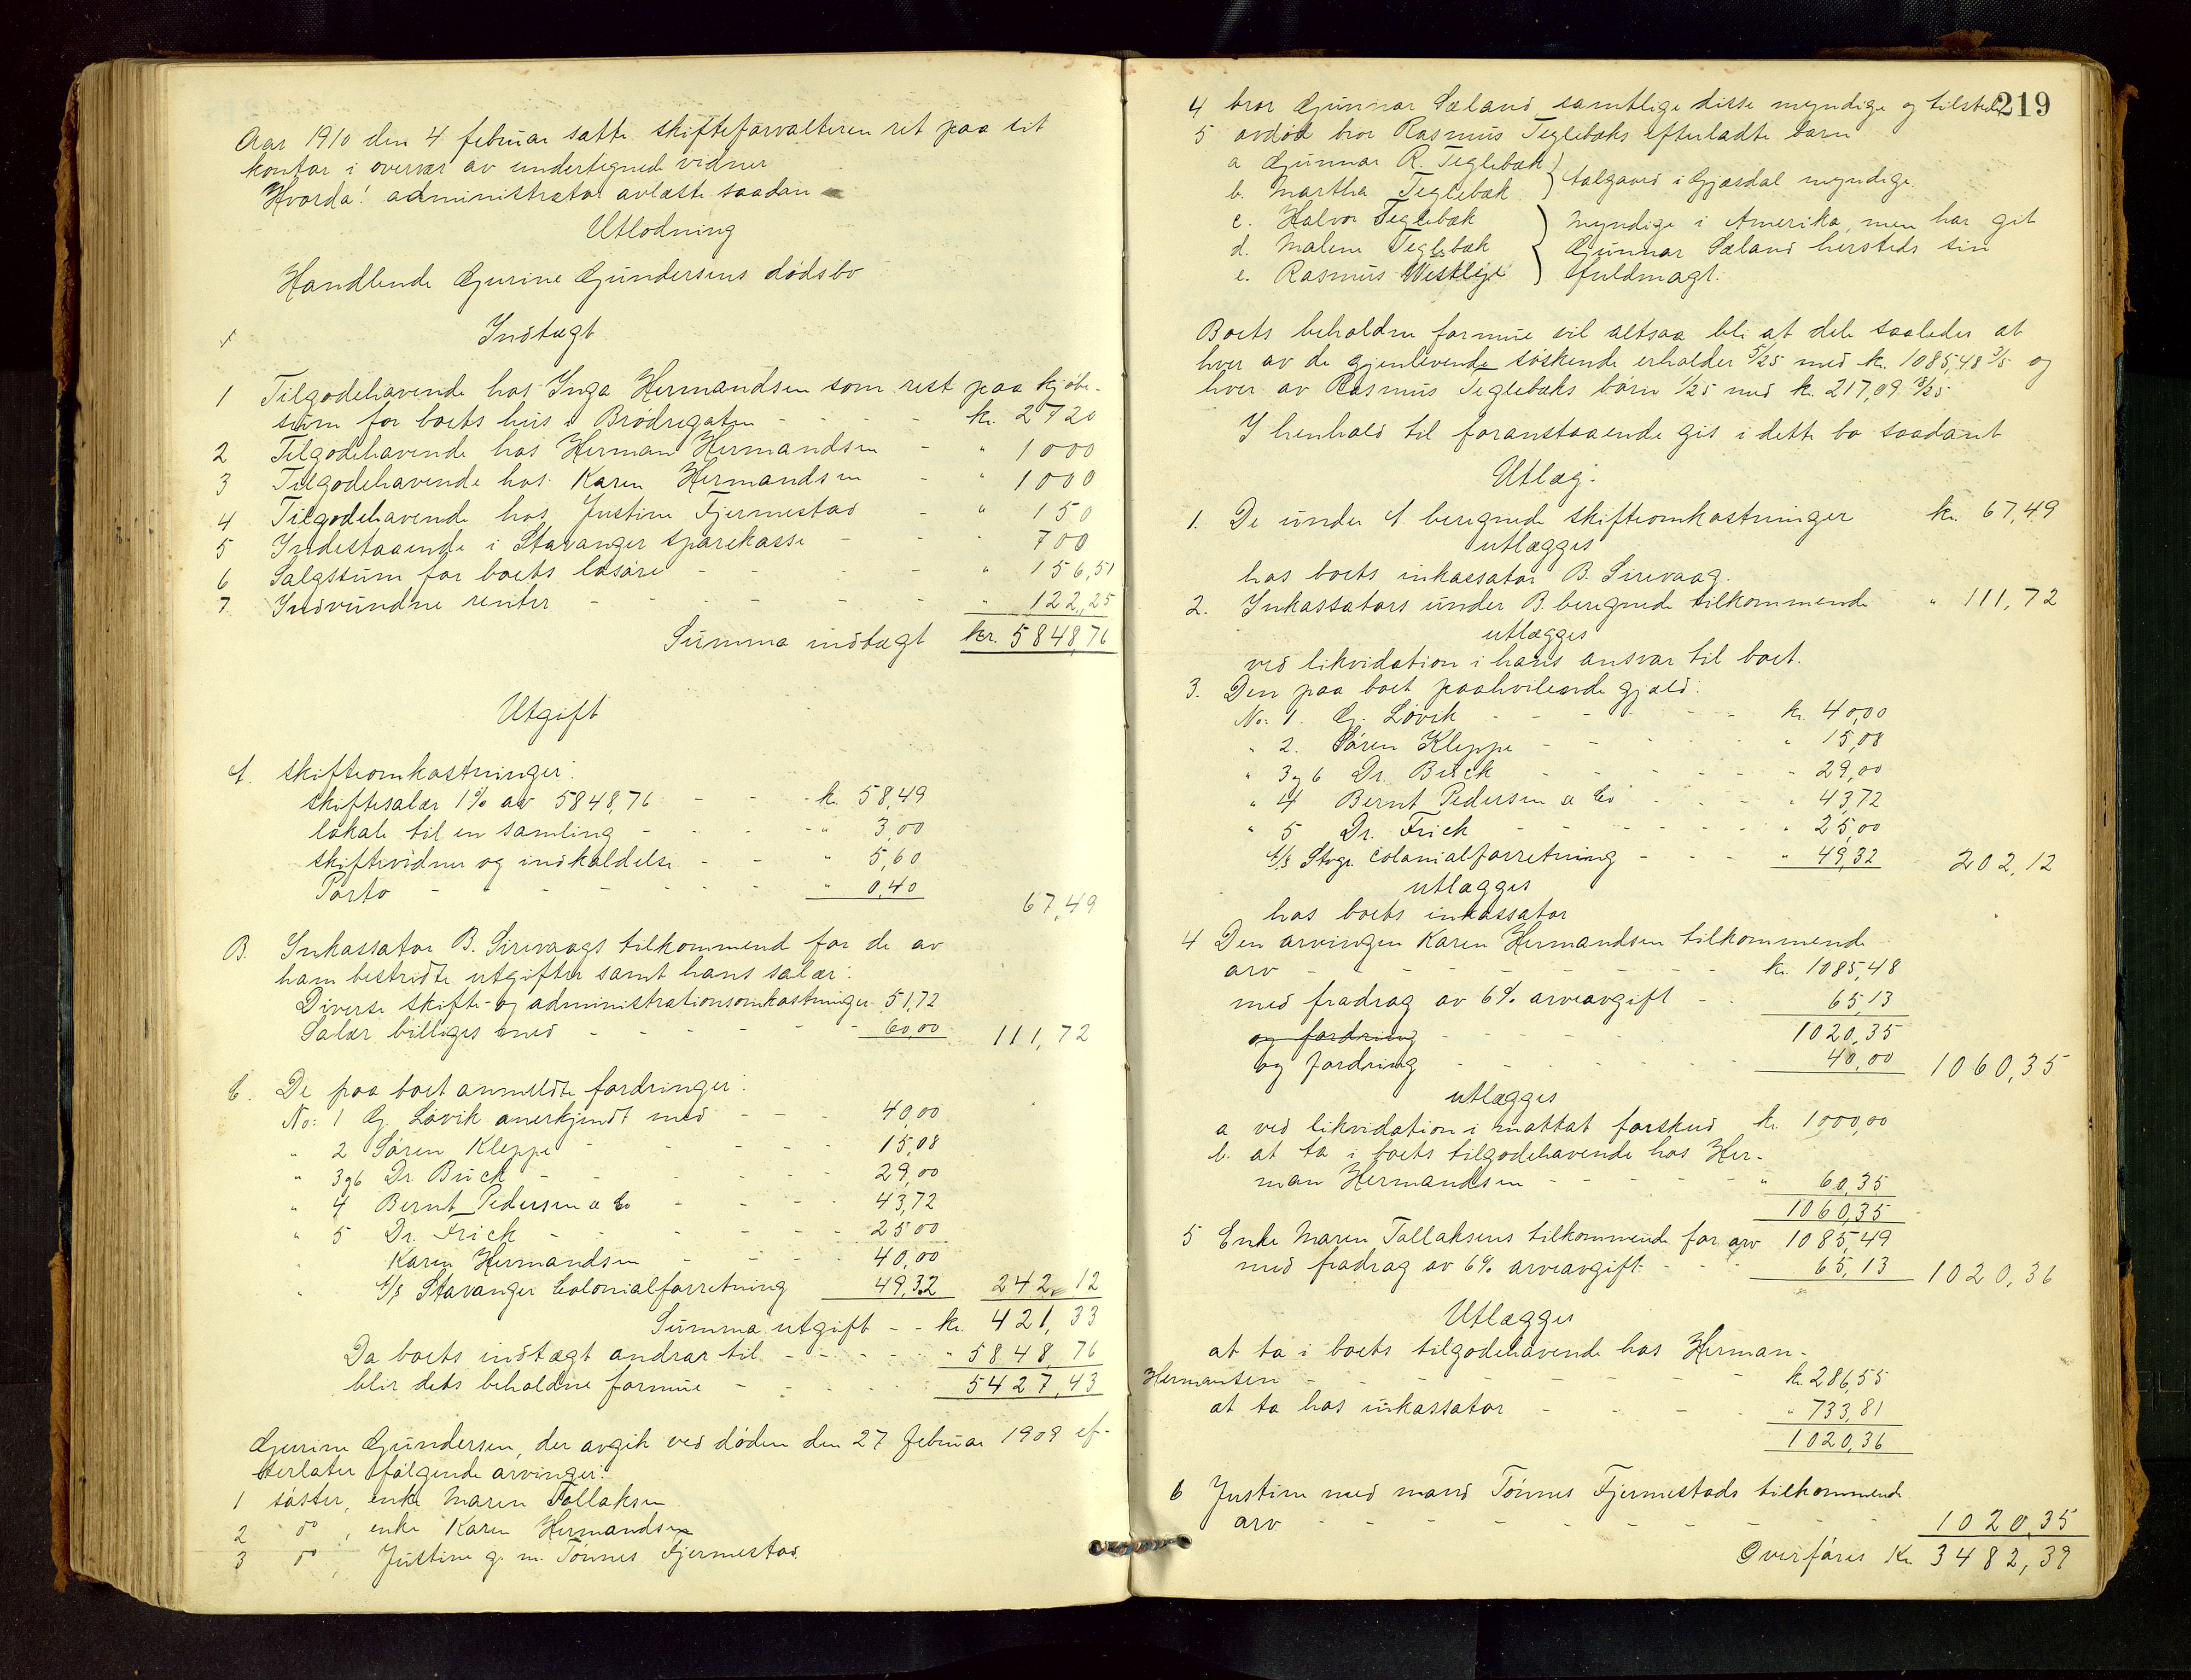 Aar 1910 den 4 februar satte skifteforvalteren ret paa sit
kontor i overvær av undertegnede vidner
Hvorda: administrator avlæste saadan
Utlodning
Handlende Gurine Gundersens dødsbo
Indtægt
1 Tilgodehavende hos Inga Hermandsen som rest paa kjøbe-
sum for boets hus i Brödregaten - - - kr. 2720
2 Tilgodehavende hos Herman Hermandsen - " 1000
3 Tilgodehavende hos Karen Hermandsen - " 1000
4 Tilgodehavende hos Justine Fjermestad - " 150
5 Indestaaende i Stavanger sparekasse - - - 700
6 Salgssum for boets løsøre - - - - " 156,51
7 Indvundne renter - - - - - - " 122,25
Summa indtægt kr. 5848,76
Utgift
A. Skifteomkostninger:
skiftesalær 1% av 5848,76 - - - k. 58,49
lokale til en samling - - - - " 3,00
skiftevidner og indkaldelse - - " 5,60
Porto - - - - - - - " 0,40 67,49
B. Inkassator B. Sirevaags tilkommend for de av
ham bestridte utgifter samt hans salær:
Diverse skifte- og administrationsomkostninger 51,72
Salær billiges med - - - - - - 60,00 111,72
C. De paa boet anmeldte fordringer:
No: 1 G. Løvik anerkjendt med - - - 40,00
" 2 Sören Kleppe - - - - 15,08
" 3og6 Dr. Buck - - - - - 29,00
" 4 Bernt Pedersen a Co - - - - 43,72
" 5 Dr. Frick - - - - - - 25 00
" Karen Hermandsen - - - - 40,00
" A/S Stavanger Colonialforretning 49,32 242,12
Summa utgift - - kr. 421,33
Da boets indtægt andrar til - - - - - " 5848,76
blir dets beholdne formue - - - - - 5427,43
Gurine Gundersen, der avgik ved døden den 27 februar 1909 ef-
terlater følgende arvinger:
1 søster, enke Maren Tollaksen
2 do , enke Karen Hermandsen
3 do , Justine g. m. Tönnes Fjermestad.
219
4 bror Gunnar Sæland samtlige disse myndige og tilstede
5 avdød bror Rasmus Teglebæks efterladte barn
a Gunnar R. Teglebæk
b. Martha Teglebæk } i Gjæsdal myndige.
c. Halvor Teglebæk } Myndige i Amerika, men har git
d. Malene Teglebæk } Gunnar Sæland hersteds sin
e. Rasmus Westlye } fuldmagt.
Boets beholdne formue vil altsaa bli at dele saaledes at
hver av de gjenlevende søskende erholder 5/25 med kr. 1085,48 3/5 og
hver av Rasmus Teglebæks barn 1/25 med k. 217,09 18/25
I henhold til foranstaaende gis i dette bo saadant
Utlæg.
1. De under A beregnede skifteomkostninger kr. 67,49
utlægges
hos boets inkassator B. Sirevaag.
2. Inkassators under B. beregnede tilkommende " 111,72
utlægges
ved likvidation i hans ansvar til boet.
3. Den paa boet paahvilende gjæld:
No: 1. G. Løvik - - - - - - kr. 40,00
" 2. Sören Kleppe - - - - - " 15,08
" 3og6 Dr. Buck - - - - - " 29,00
" 4 Bernt Pedersen a Co - - - " 43,72
" 5 Dr. Frick - - - - - - " 25,00
A/S Stvgr. Colonialforretning - - - " 49,32 202,12
utlægges
hos boets inkassator
4 Den arvingen Karen Hermandsen tilkommende
arv - - - - - - - - kr. 1085,48
med fradrag av 6% arveavgift - - 65,13
og fordring - - - - 1020,35
og fordring - - - - - - 40,00 1060,35
utlægges
a ved likvidation i mottat forskud kr. 1000,00
b. at ta i boets tilgodehavende hos Her-
man Hermandsen - - - - - - " 60,35
1060,35
5 Enke Maren Tollaksens tilkommende for arv 1085,49
med fradrag av 6% arveavgift - - - 65,13 1020,36
Utlægges
at ta i boets tilgodehavende hos Herman-
Hermansen - - - - - - - k. 286,55
at ta hos inkassator - - - - " 733,81
1020,36
6 Justine med mand Tönnes Fjermestads tilkommende
arv - - - - - - - - - 1020,35
Overføres Kr. 3482,39